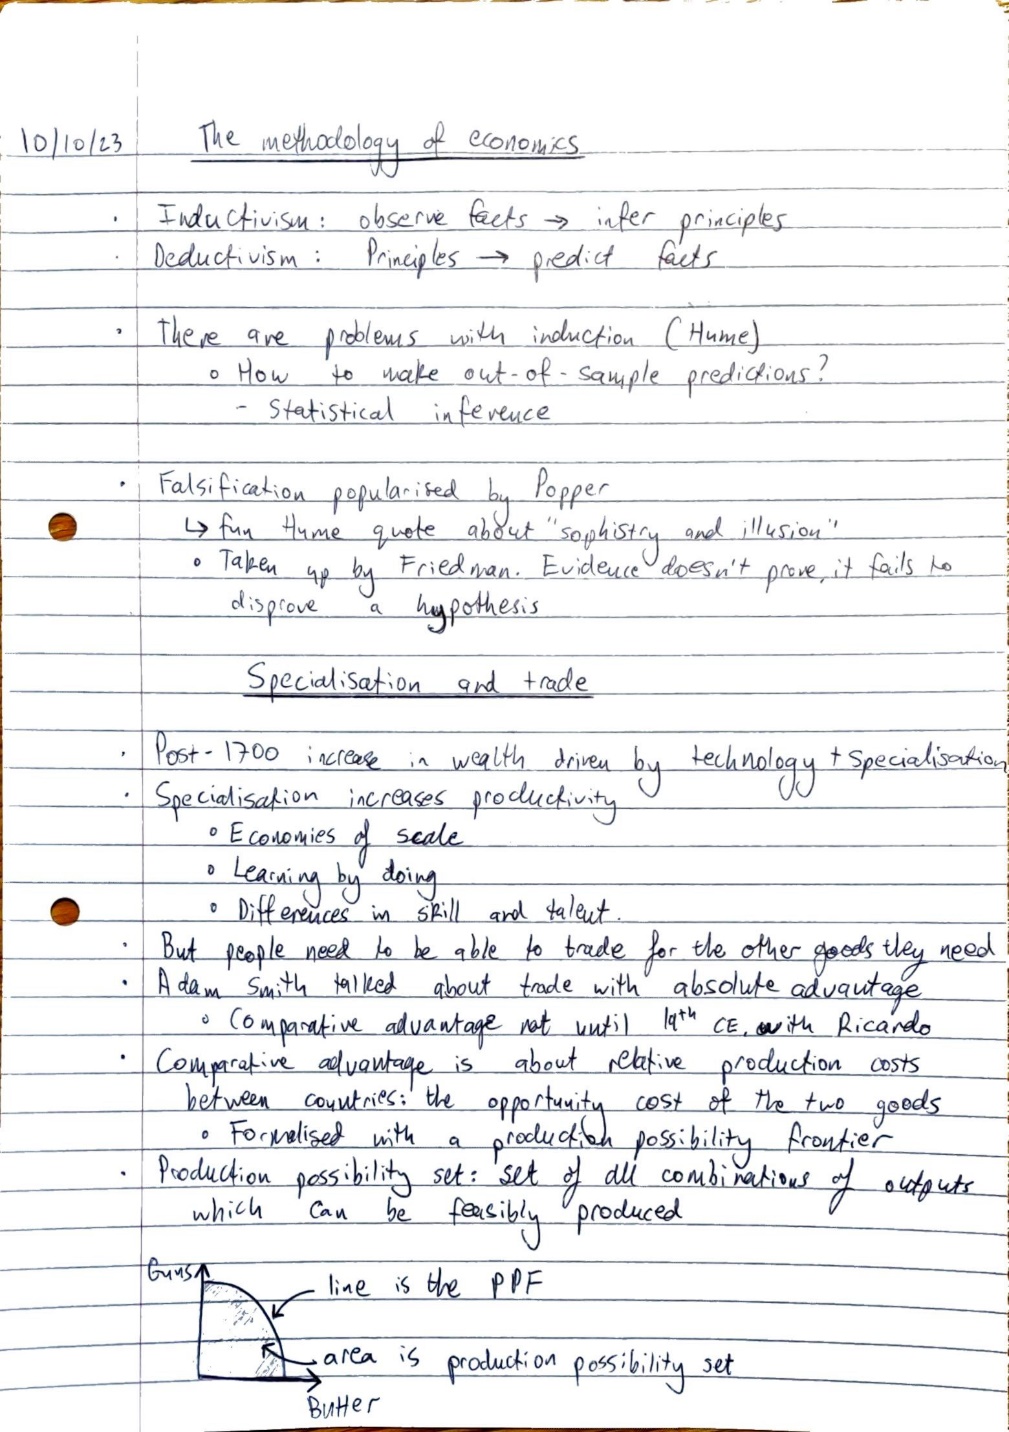 10/10/23 The methodology of economics
· Inductivism: observe facts → infer principles
· Deductivism: Principles → predict facts
· There are problems with induction (Hume)
o How to make out-of-sample predictions?
- Statistical inference
· Falsification popularised by Popper
↳ fun Hume quote about "sophistry and illusion"
o Taken up by Friedman. Evidence doesn't prove, it fails to
disprove a hypothesis
Specialisation and trade
· Post-1700 increase in wealth driven by technology + specialisation
· Specialisation increases productivity
o Economies of scale
o Learning by doing
o Differences in skill and talent.
· But people need to be able to trade for the other goods they need
· Adam Smith talked about trade with absolute advantage
o Comparative advantage not until 19th CE. with Ricardo
· Comparative advantage is about relative production costs
between countries: the opportunity cost of the two goods
o Formalised with a production possibility frontier
· Production possibility set: set of all combinations of outputs
which can be feasibly produced
Guns
line is the PPF
area is production possibility set
Butter